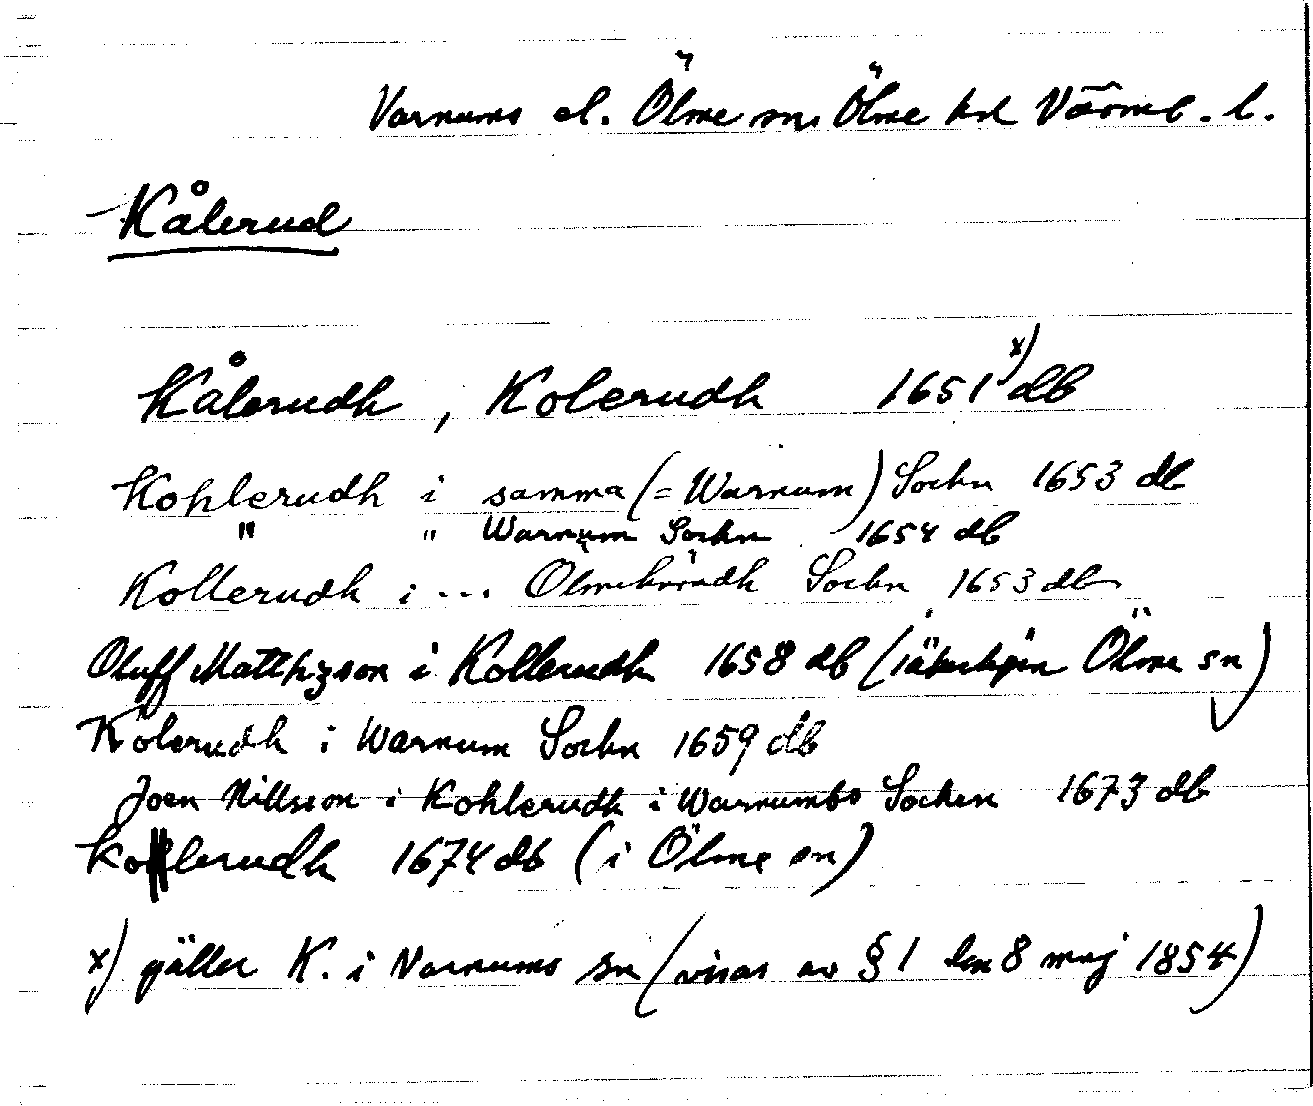 Varnums el. Ölme sn, Ölme hd Värml. l.
Kålerud
Kålerudh, Kolerudh 1651 x) db
Kohlerudh i samma (= Warnum) Sochn 1653 db
" " Warnum Sochn 1654 db
Kollerudh i ... Ölmehärädh Sochn 1653 db
Oluff Matthzson i Kollerudh 1658 db (säkerligen Ölme sn)
Kolerudh i Warnum Sochn 1659 db
Joen Nillsson i Kohlerudh i Warnumbs Sochen 1673 db
Kollerudh 1674 db (i Ölme sn)
x) gäller K. i Varnums sn (visas av § 1 den 8 maj 1854)